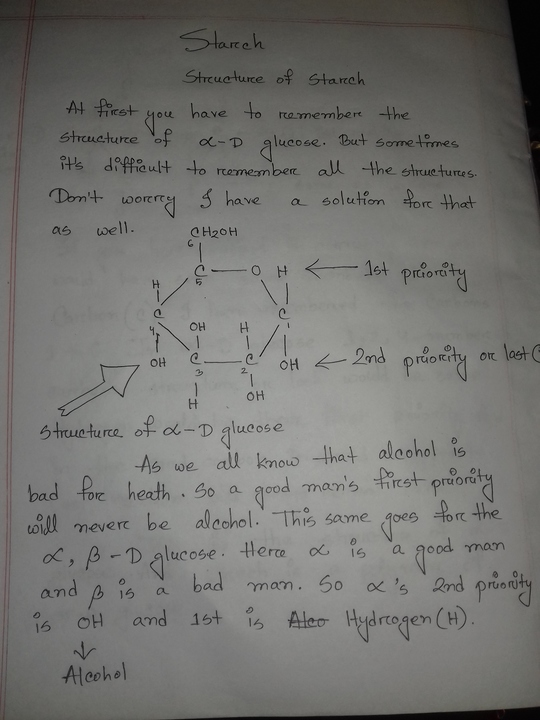 Starch
Structure of Starch
At first you have to remember the
structure of α-D glucose. But sometimes
it's difficult to remember all the structures.
Don't worry I have a solution for that
as well.
CH2OH
6
C O H ← 1st priority
5
H
C C
4 1
OH H
OH C C OH ← 2nd priority or last
3 2
H OH
Structure of α-D glucose
As we all know that alcohol is
bad for heath. So a good man's first priority
will never be alcohol. This same goes for the
α, β-D glucose. Here α is a good man
and β is a bad man. So α's 2nd priority
is OH and 1st is Alco Hydrogen (H).
↓
Alcohol